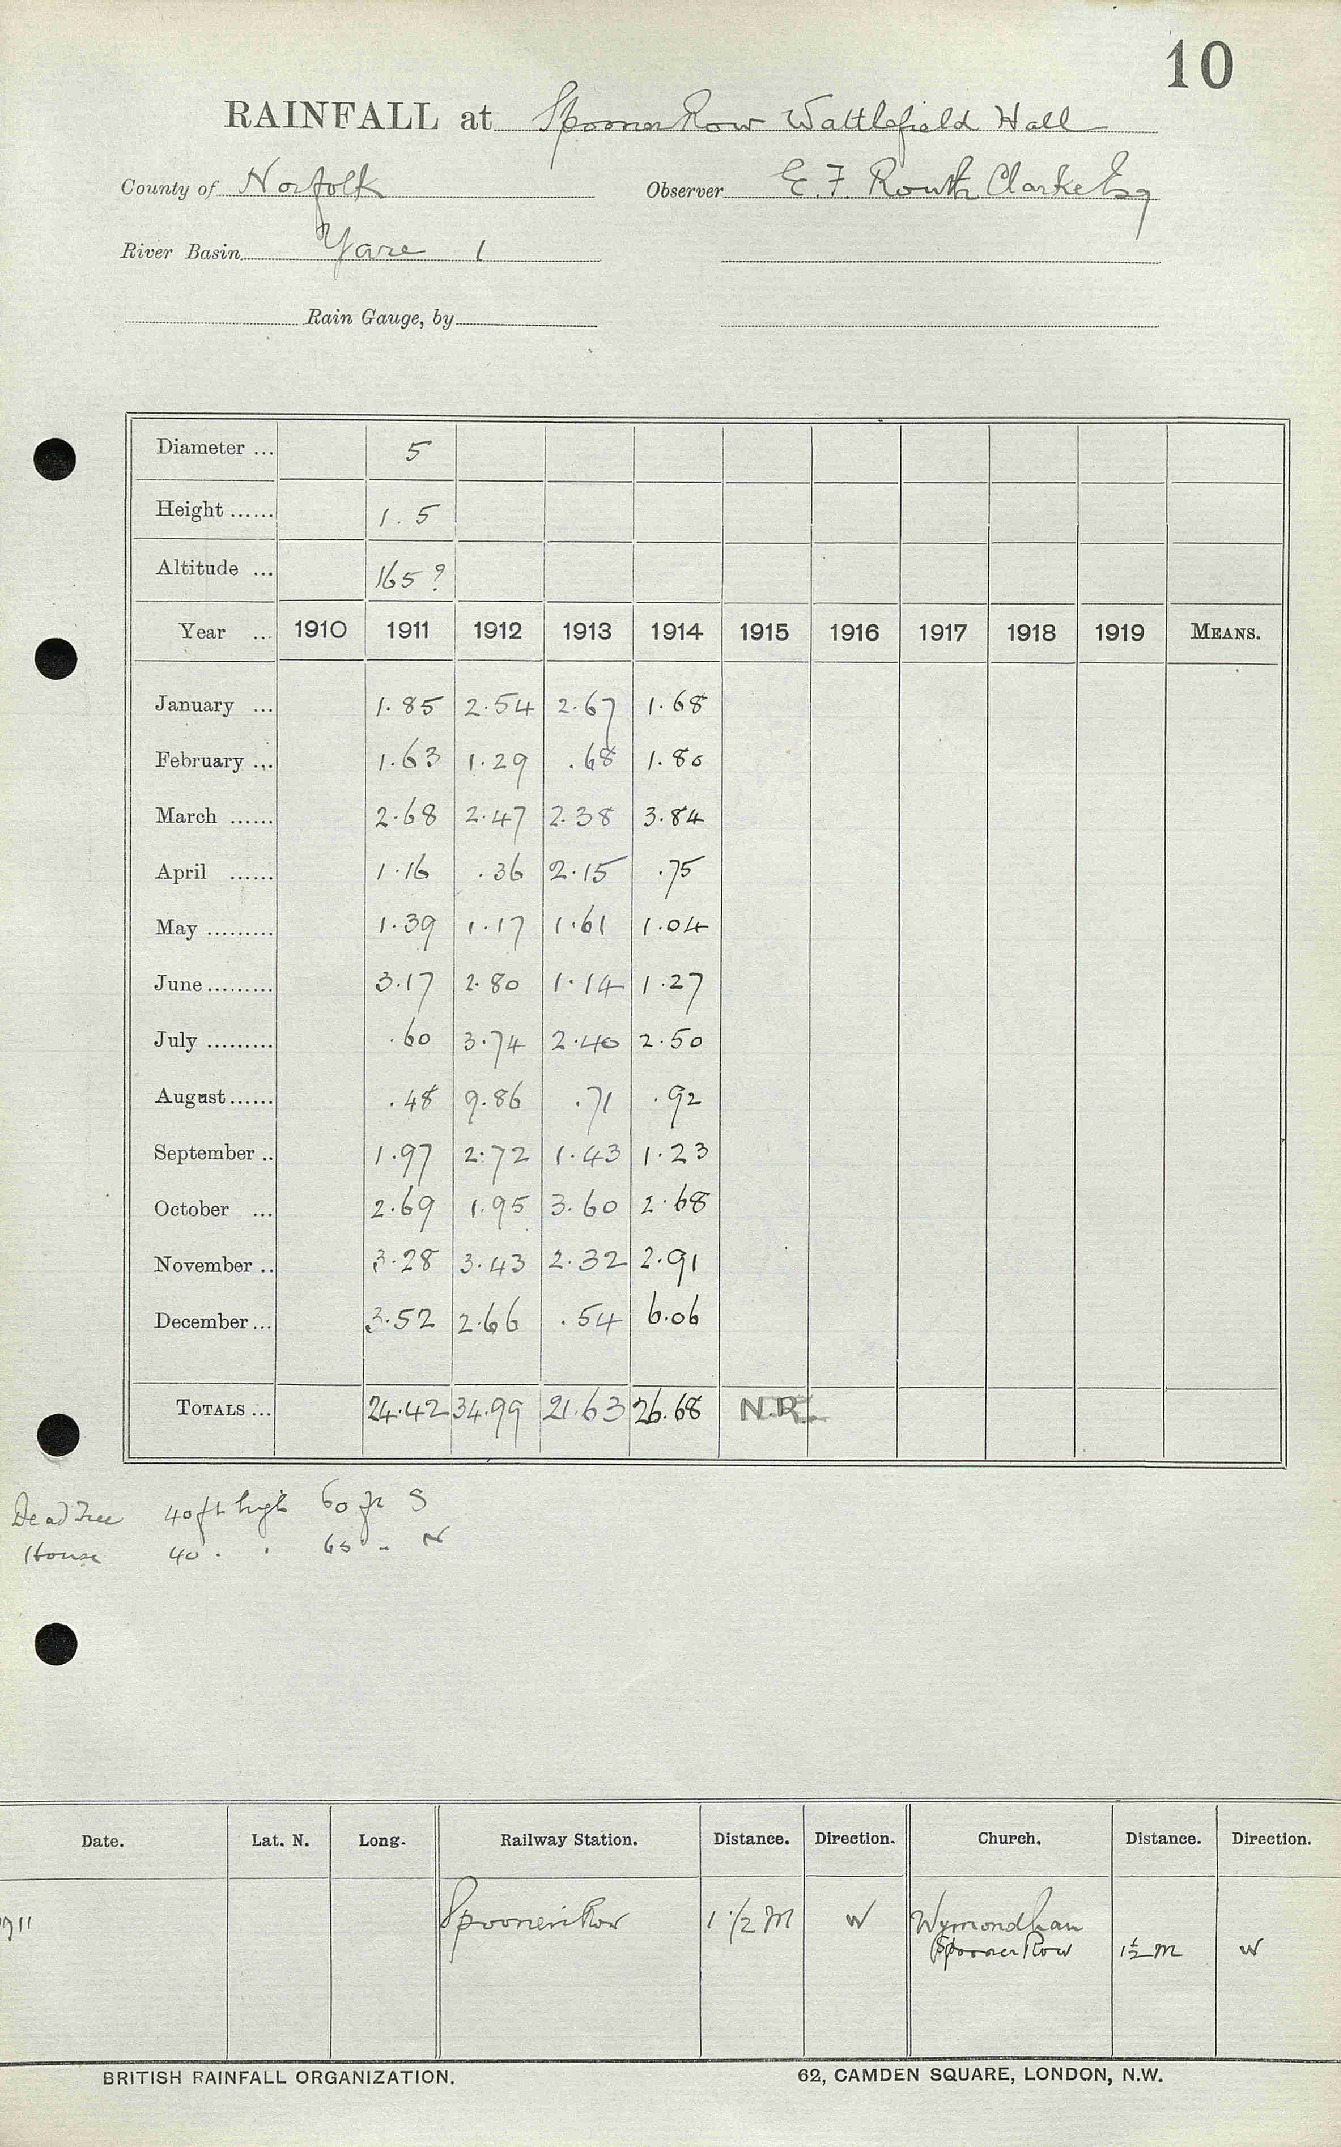 10
RAINFALL at Spooner Row Wattlefield Hall
County of Norfolk Observer E. F. Routh Clarke Esq
River Basin Yare 1
Rain Gauge, by
Diameter ... 5
Height ...... 1.5
Altitude ... 165?
Year ... 1910 1911 1912 1913 1914 1915 1916 1917 1918 1919 MEANS.
January ... 1.85 2.54 2.67 1.68
February ... 1.63 1.29 .68 1.80
March ...... 2.68 2.47 2.38 3.84
April ...... 1.16 .36 2.15 .75
May ......... 1.39 1.17 1.61 1.04
June ......... 3.17 2.80 1.14 1.27
July ......... .60 3.74 2.40 2.50
August ...... .48 9.86 .71 .92
September .. 1.97 2.72 1.43 1.23
October ... 2.69 1.95 3.60 2.68
November .. 3.28 3.43 2.32 2.91
December ... 3.52 2.66 .54 6.06
TOTALS ... 24.42 34.99 21.63 26.68 N.R.
Dead Tree 40 ft high 60 ft S
House 40 " " 65 " N
Date. Lat. N. Long. Railway Station. Distance. Direction. Church. Distance. Direction.
1911 Spooner Row 1 1/2 M W Wymondham
Spooner Row 1½ M W
BRITISH RAINFALL ORGANIZATION. 62, CAMDEN SQUARE, LONDON, N.W.